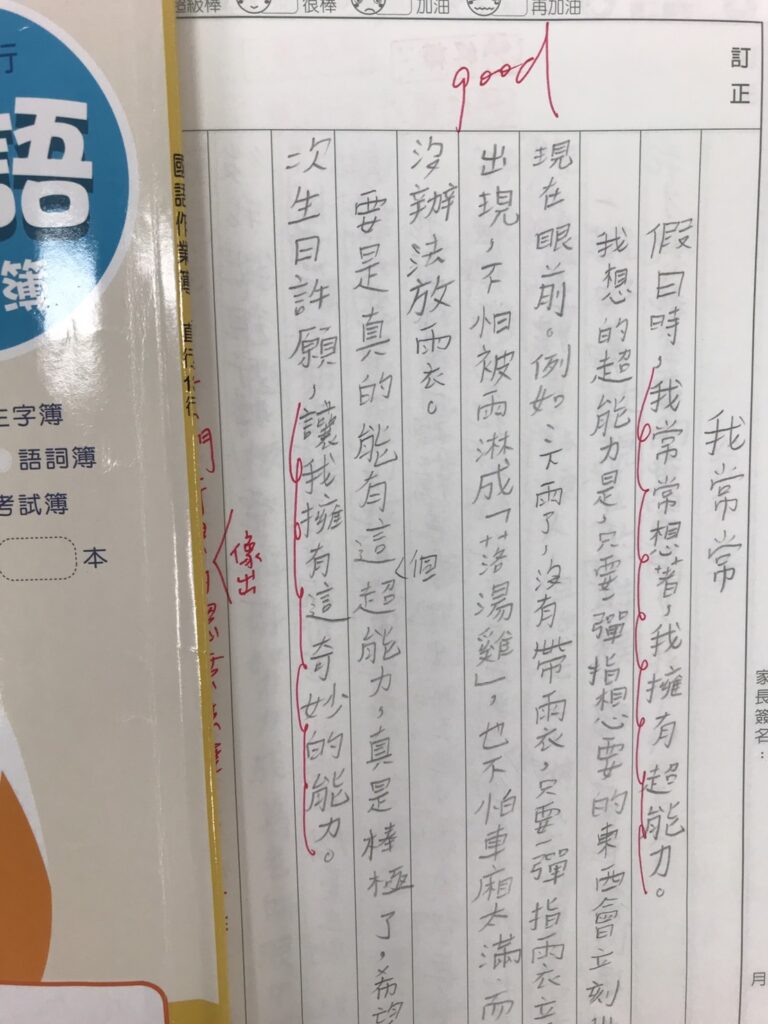 超級棒 很棒 加油 再加油
訂正
good
我常常
假日時，我常常想著，我擁有超能力。
我想的超能力是，只要一彈指想要的東西會立刻出
現在眼前。例如：下雨了，沒有帶雨衣，只要一彈指雨衣立
出現，不怕被雨淋成「落湯雞」，也不怕車廂太滿，而
沒辦法放雨衣。
要是真的能有這個超能力，真是棒極了，希望
次生日許願，讓我擁有這奇妙的能力。
像出
家長簽名：
月
國語作業簿 直行
行
語
簿
生字簿
語詞簿
考試簿
本